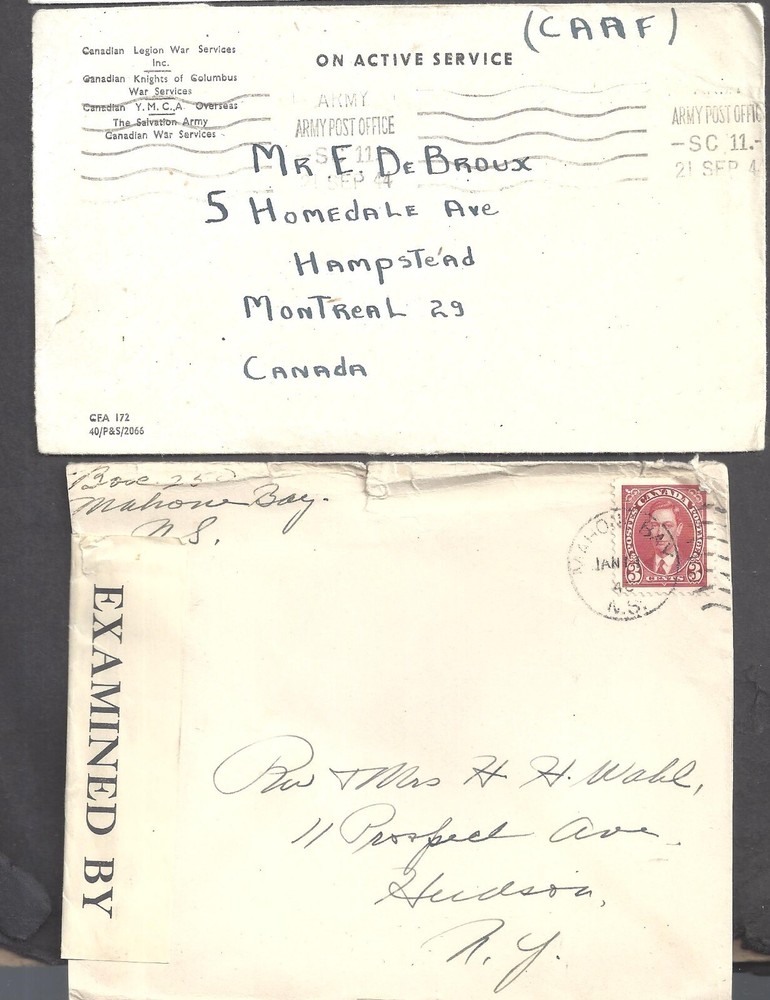 (CAAF)
Canadian Legion War Services
Inc.
Canadian Knights of Columbus
War Services
Canadian Y.M.C.A. Overseas
The Salvation Army
Canadian War Services
ON ACTIVE SERVICE
ARMY
ARMY POST OFFICE
SC 11
21 SEP 44
ARMY POST OFFIC
-SC 11.-
21 SEP 4
MR E. DeBROUX
5 HOMEDALE Ave
HAMPSTEAD
MONTREAL 29
CANADA
CFA 172
40/P&S/2066
Box 25
Mahone Bay.
N.S.
POSTES CANADA POSTAGE
3 CENTS 3
MAHONE BAY
JAN
N.S.
EXAMINED BY
Rev & Mrs H. H. Wahl,
11 Prospect Ave.
Hudson,
N. Y.